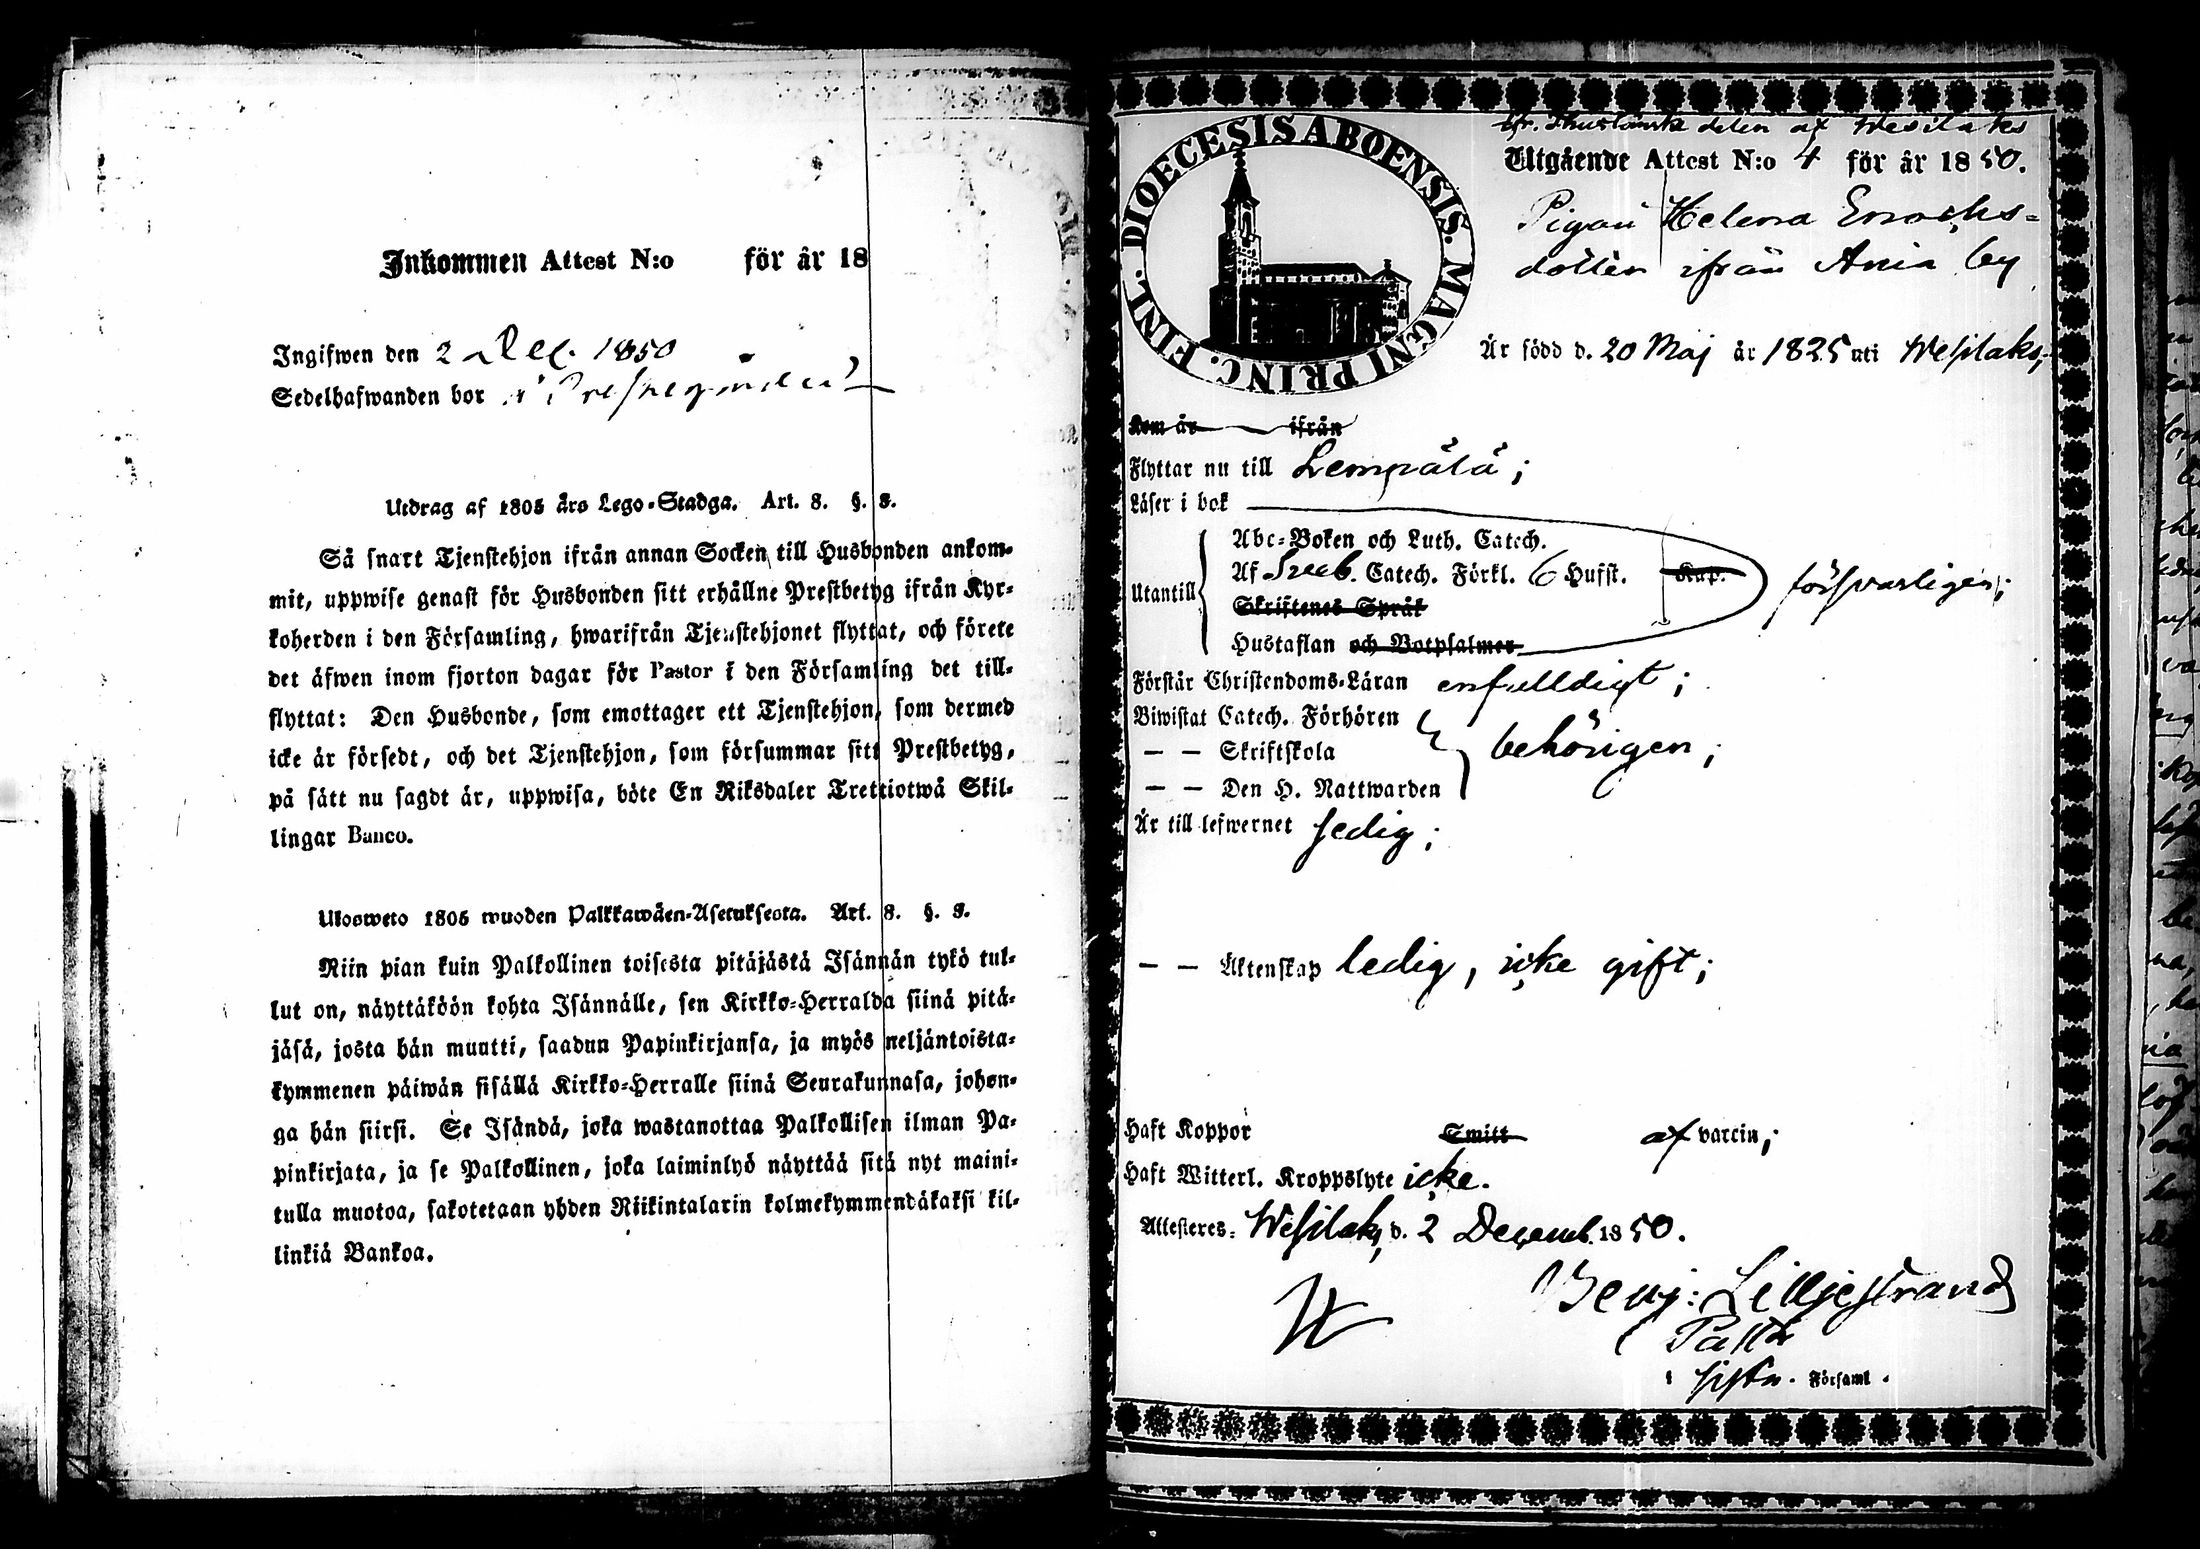 Inkommen Attest N:o för år 18
Ingifwen den 2 Dec. 1850
Sedelhafwanden bor i Prestegården
Utdrag af 1805 års Lego-Stadga. Art. 8. §. 8.
Så snart Tjenstehjon ifrån annan Socken till Husbonden ankom-
mit, uppwise genast för Husbonden sitt erhållne Prestbetyg ifrån Kyr-
koherden i den Församling, hwarifrån Tjenstehjonet flyttat, och förete
det äfwen inom fjorton dagar för Pastor i den Församling det till-
flyttat: Den Husbonde, som emottager ett Tjenstehjon, som dermed
icke är försedt, och det Tjenstehjon, som försummar sitt Prestbetyg,
på sätt nu sagdt är, uppwisa, böte En Riksdaler Trettiotwå Skil-
lingar Banco.
Ulosweto 1805 wuoden Palkkawäen-Asetuksesta. Art. 8. §. 8.
Niin pian kuin Palkollinen toisesta pitäjästä Isännän tykö tul-
lut on, näyttäköön kohta Isännälle, sen Kirkko-Herralda siinä pitä-
jäsä, josta hän muutti, saadun Papinkirjansa, ja myös neljäntoista-
kymmenen päiwän sisällä Kirkko-Herralle siinä Seurakunnasa, johon-
ga hän siirsi. Se Isändä, joka wastanottaa Palkollisen ilman Pa-
pinkirjata, ja se Palkollinen, joka laiminlyö näyttää sitä nyt maini-
tulla muotoa, sakotetaan yhden Riikintalarin kolmekymmendäkaksi kil-
linkiä Bankoa.
DIOECESIS ABOENSIS. MAGNI PRINC. FINL.
delen af Wesilaks
Utgående Attest N:o 4 för år 1850.
Pigan Helena Enochs-
dotter ifrån Ania by
Är född d. 20 Maj år 1825 uti Wesilaks;
Kom år ifrån
Flyttar nu till Lempälä;
Läser i bok
Abc-Boken och Luth. Catech.
Utantill Af Sveb. Catech. Förkl. 6 Hufst. Kap. försvarligen;
Skriftenes Språk
Hustaflan och Botpsalmer
Förstår Christendoms-Läran enfulldigt;
Biwistat Catech. Förhören
— — Skriftskola behörigen;
— — Den H. Nattwarden
Är till lefwernet sedig;
— — Äktenskap ledig, icke gift;
Haft Koppor Smitt af vaccin;
Haft Witterl. Kroppslyte icke.
Attesteres: Wesilaks, d. 2 Decemb. 1850.
Benj: Lilljestrand
Pastor
i Församl.